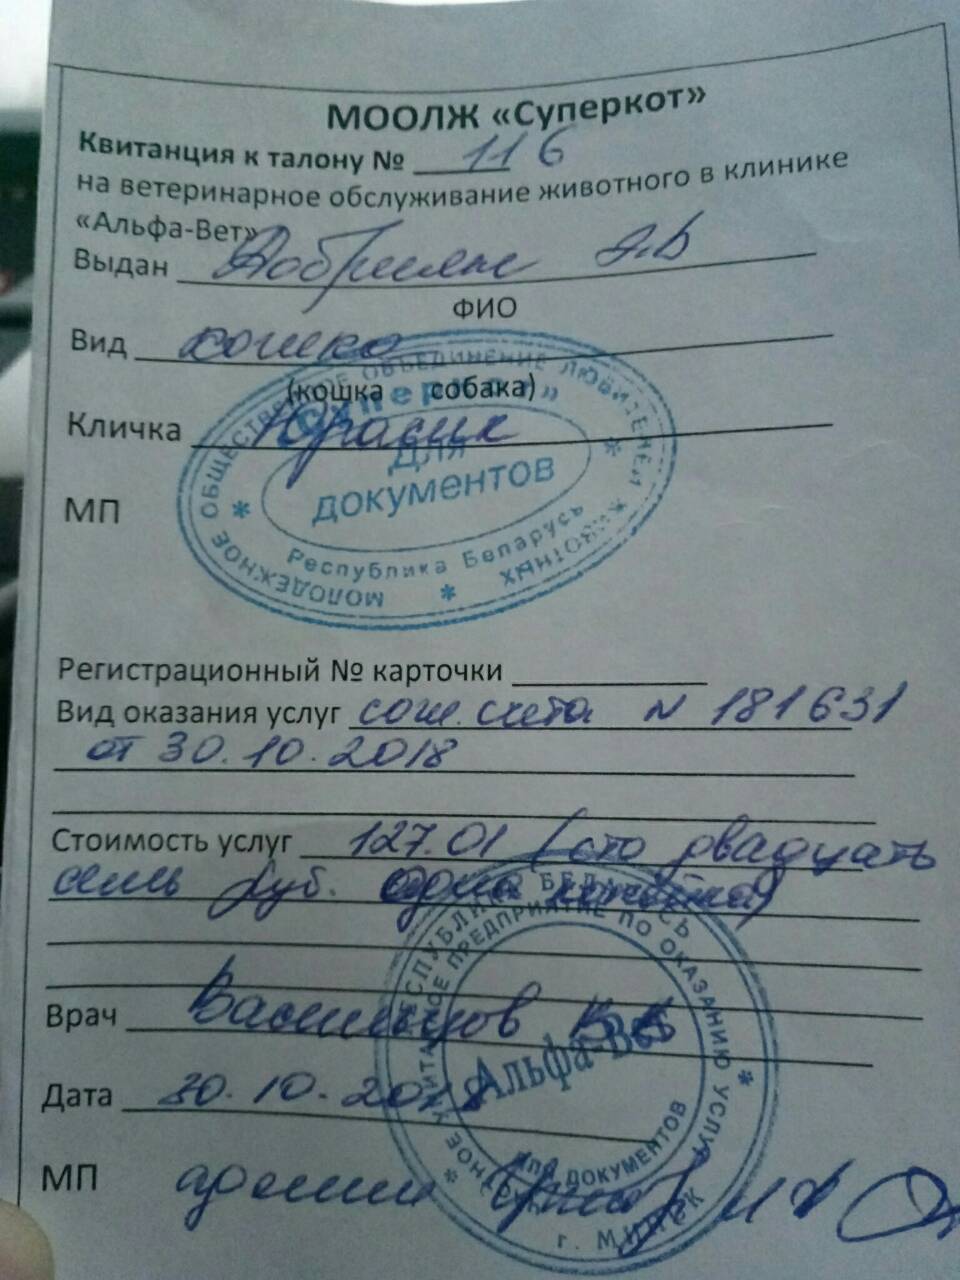 МООЛЖ «Суперкот»
Квитанция к талону № 116
на ветеринарное обслуживание животного в клинике
«Альфа-Вет»
Выдан А.В
ФИО
Вид кошка
(кошка собака)
Кличка Юрасик
МП
МОЛОДЕЖНОЕ ОБЩЕСТВЕННОЕ ОБЪЕДИНЕНИЕ ЛЮБИТЕЛЕЙ ЖИВОТНЫХ
«Суперкот»
Для
документов
Республика Беларусь
Регистрационный № карточки
Вид оказания услуг согл. счета N 181631
от 30.10.2018
Стоимость услуг 127.01 (сто двадцать
семь руб. одна копейка)
Врач
Дата 30.10.2018
МП
РЕСПУБЛИКА БЕЛАРУСЬ
УНИТАРНОЕ ПРЕДПРИЯТИЕ ПО ОКАЗАНИЮ УСЛУГ
Альфа-Вет
ДЛЯ ДОКУМЕНТОВ
г. МИНСК